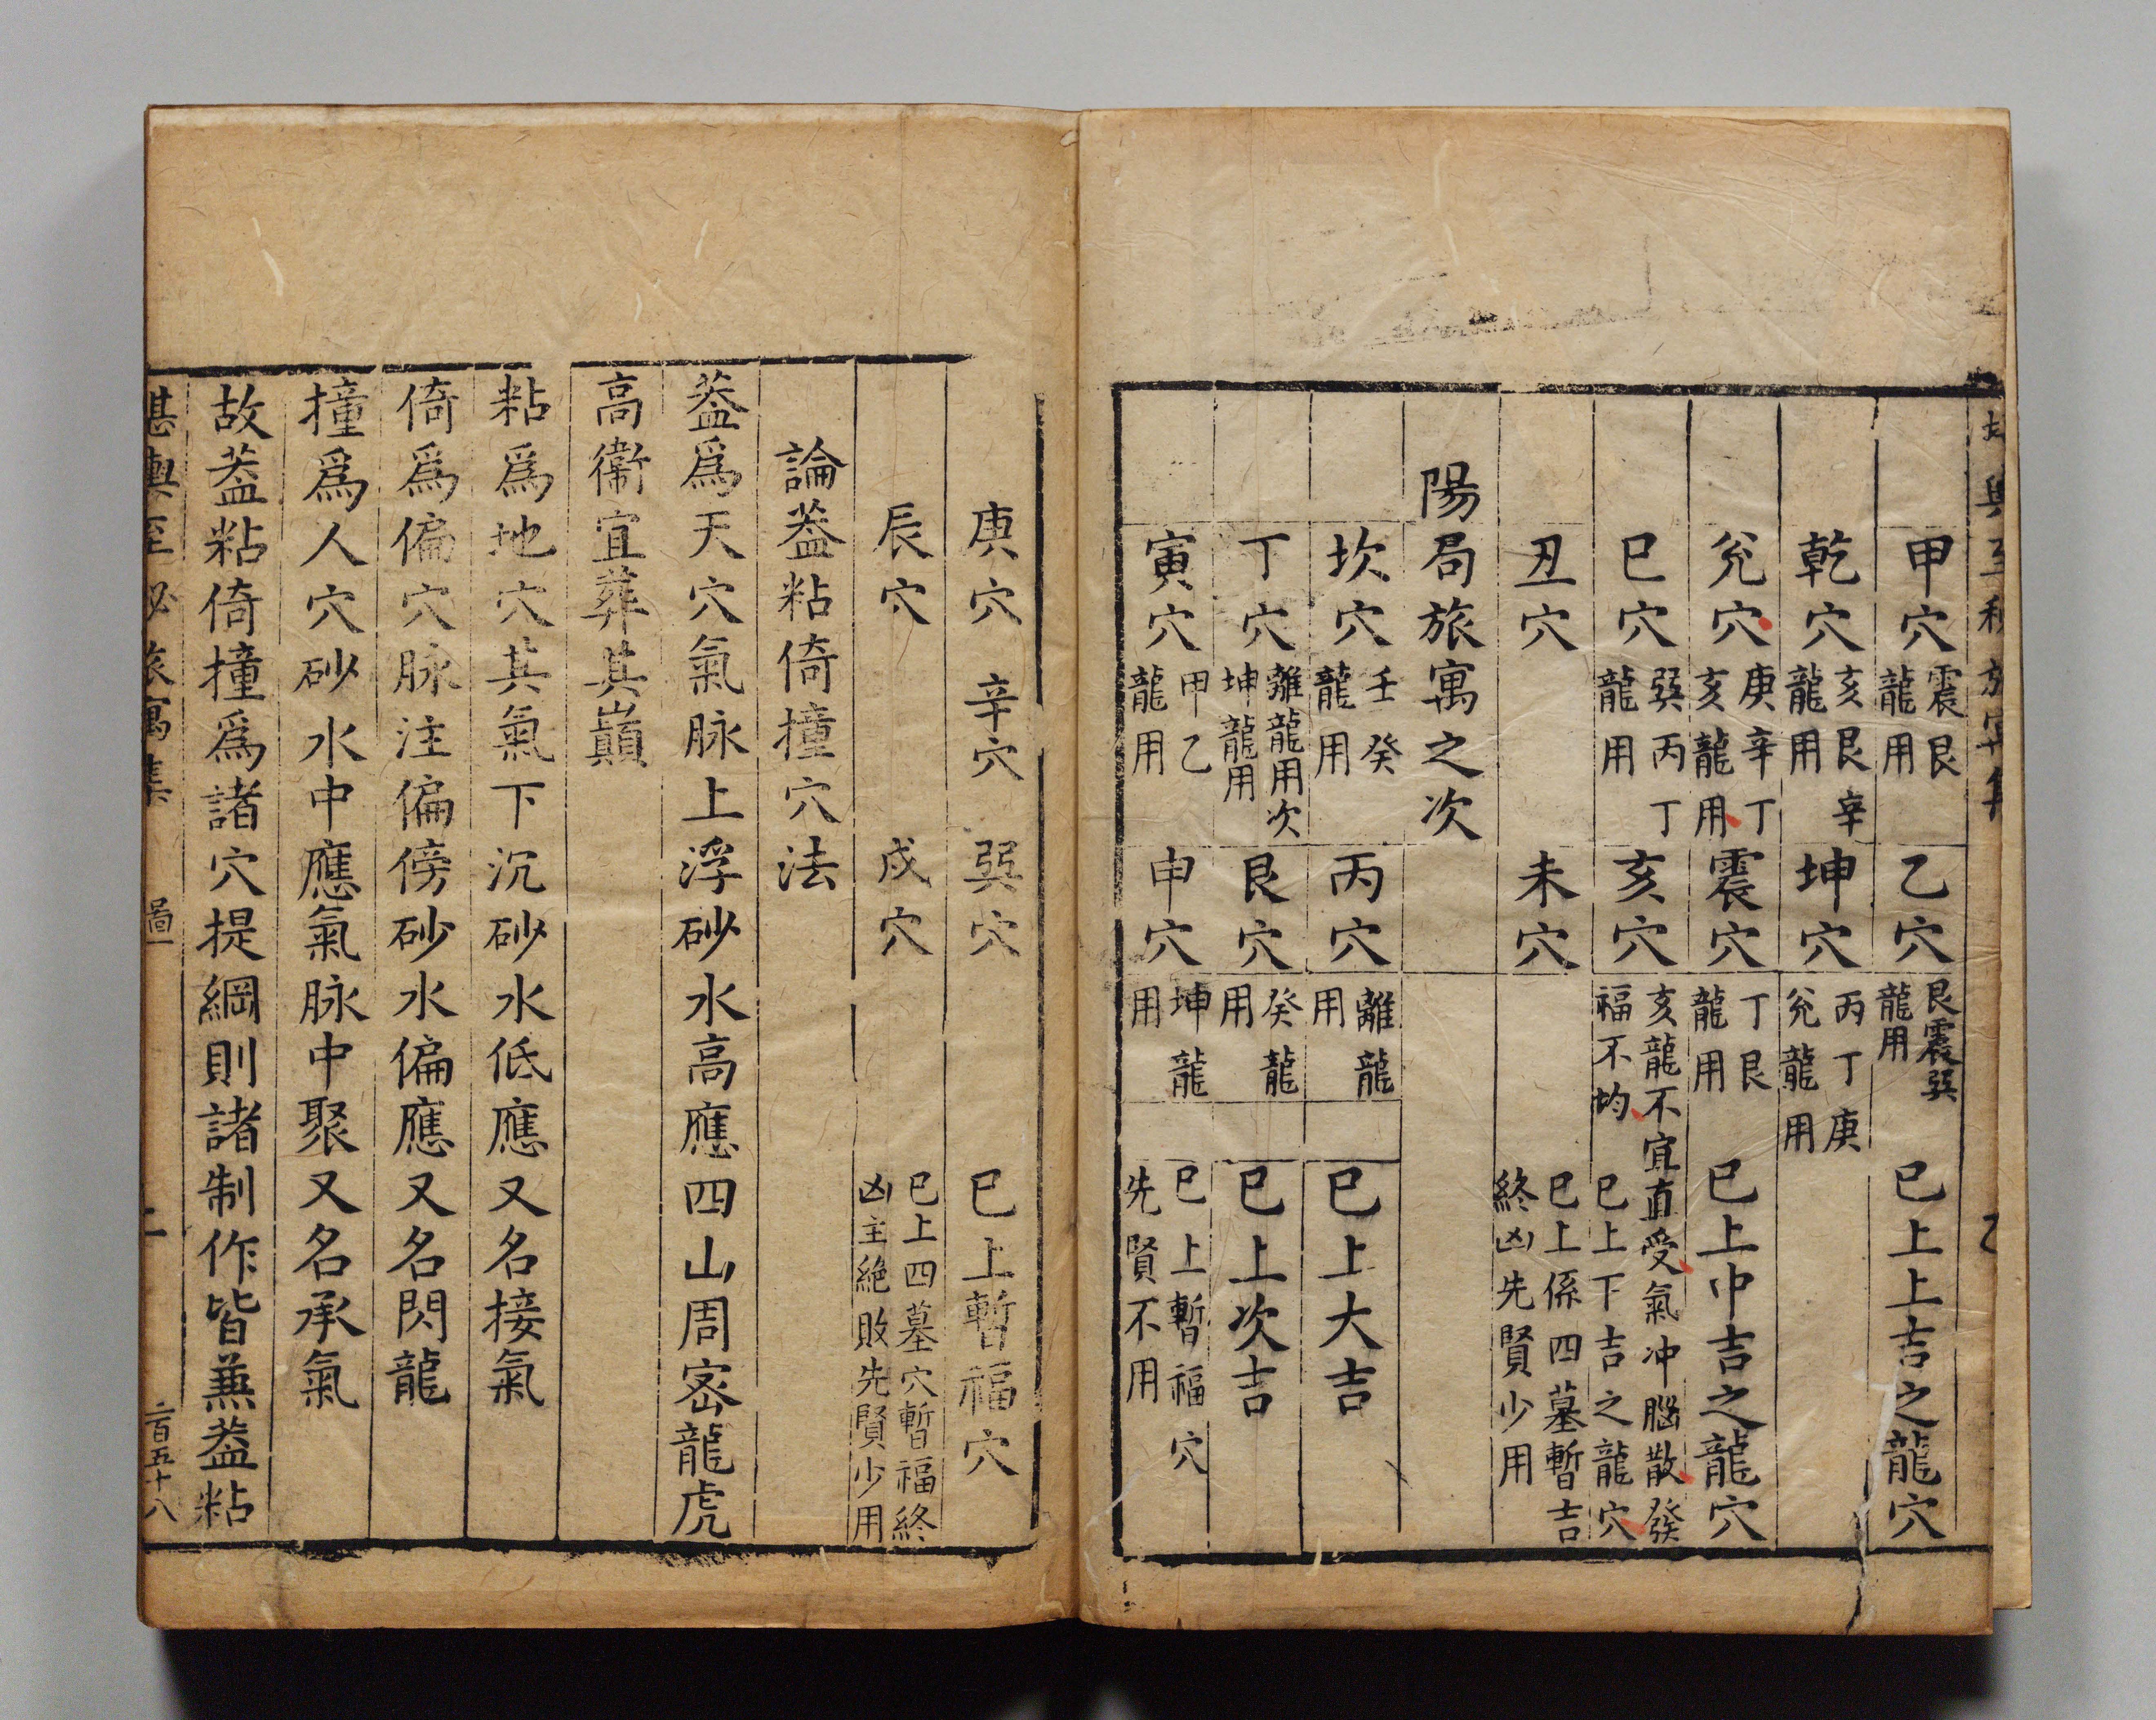 甲穴 震艮龍用 乙穴 艮震巽龍用 已上上吉之龍穴
乾穴 亥艮辛龍用 坤穴 丙丁庚兊龍用
兊穴 庚辛丁亥龍用 震穴 丁艮龍用 已上中吉之龍穴
巳穴 巽丙丁龍用 亥穴 亥龍不宜直受氣冲腦散發福不均 已上下吉之龍穴
丑穴 未穴 已上係四墓暫吉終凶先賢少用
陽局旅寓之次
坎穴 壬癸龍用 丙穴 離龍用 已上大吉
丁穴 離龍用次坤龍用 艮穴 癸龍用 已上次吉
寅穴 甲乙龍用 申穴 坤龍用 已上暫福穴先賢不用
庚穴 辛穴 巽穴 已上暫福穴
辰穴 戌穴 已上四墓穴暫福終凶主絶敗先賢少用
論葢粘倚撞穴法
葢爲天穴氣脉上浮砂水高應四山周宻龍虎
高衞宜葬其巔
粘爲地穴其氣下沉砂水低應又名接氣
倚爲偏穴脉注偏傍砂水偏應又名閃龍
撞爲人穴砂水中應氣脉中聚又名承氣
故葢粘倚撞爲諸穴提綱則諸制作皆兼葢粘
堪輿至秘旅寓集 二百五十八